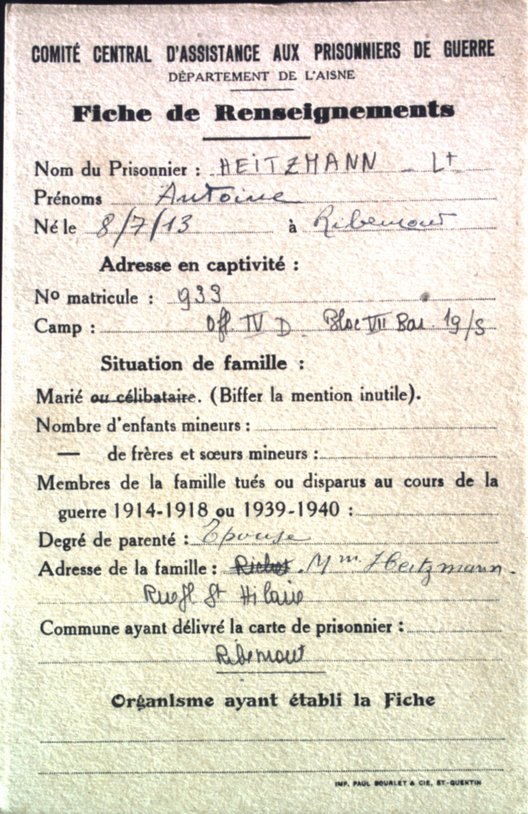 COMITÉ CENTRAL D'ASSISTANCE AUX PRISONNIERS DE GUERRE
DÉPARTEMENT DE L'AISNE
Fiche de Renseignements
Nom du Prisonnier : HEITZMANN - Lt
Prénoms Antoine
Né le 8/7/13 à Ribemont
Adresse en captivité :
No matricule : 933
Camp : Off. IV D. Bloc VII Bar. 19/S
Situation de famille :
Marié ou célibataire. (Biffer la mention inutile).
Nombre d'enfants mineurs :
— de frères et sœurs mineurs :
Membres de la famille tués ou disparus au cours de la
guerre 1914-1918 ou 1939-1940 :
Degré de parenté : Epouse
Adresse de la famille : Mme Heitzmann.
St Hilaire
Commune ayant délivré la carte de prisonnier :
Ribemont
Organisme ayant établi la Fiche
IMP. PAUL BOURLET & CIE, ST-QUENTIN